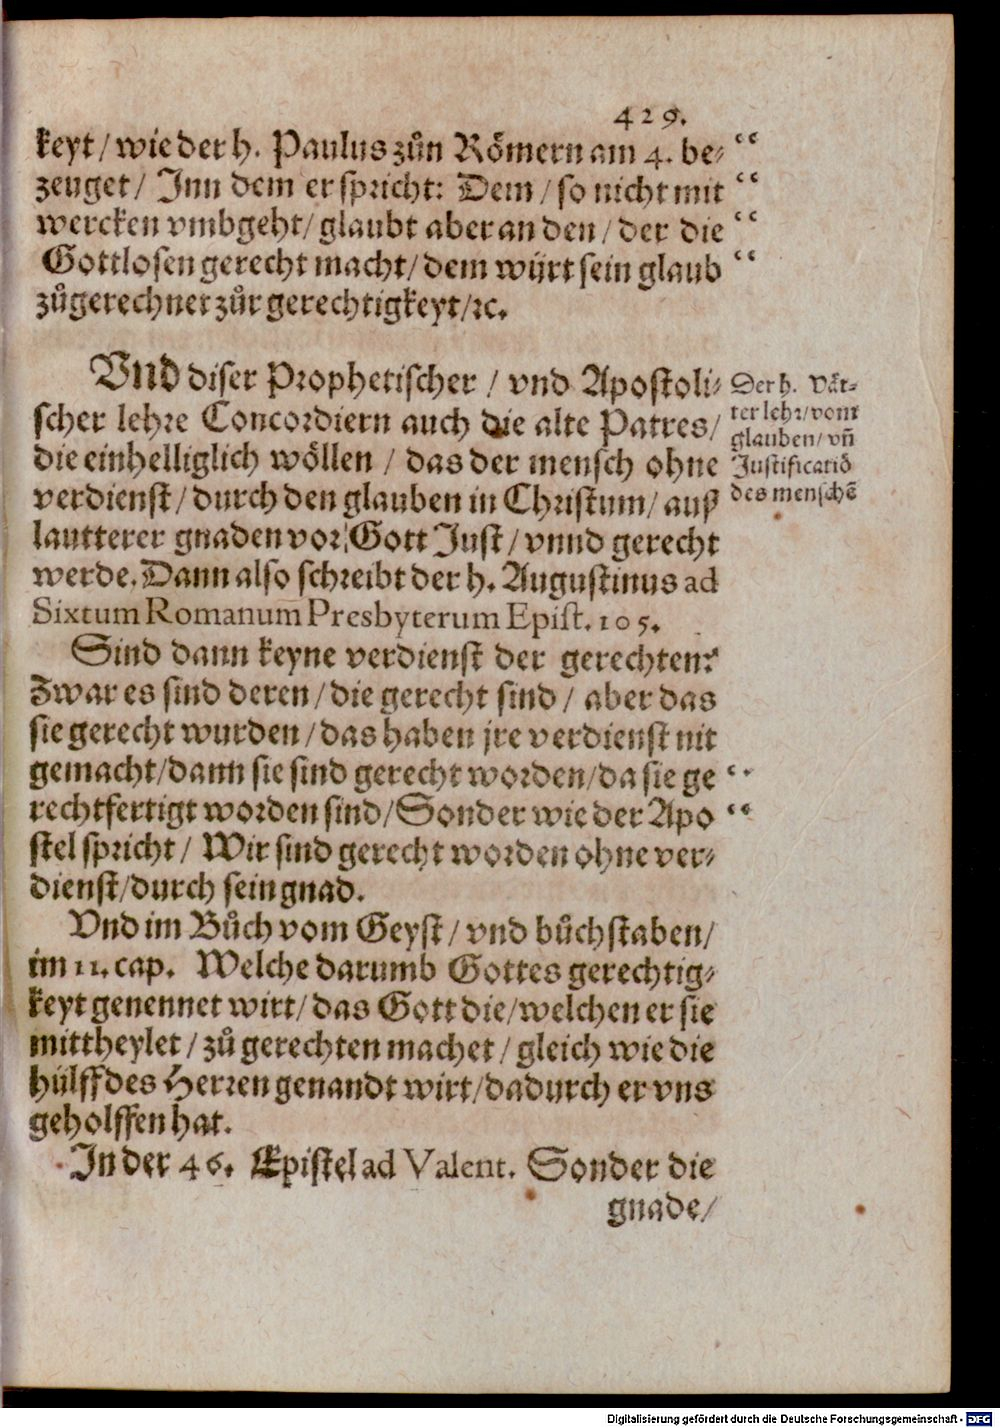 429.
keyt/ wie der h. Paulus zůn Römern am 4. be⸗ “
zeuget/ Inn dem er spricht: Dem/ so nicht mit “
wercken vmbgeht/ glaubt aber an den/ der die “
Gottlosen gerecht macht/ dem würt sein glaub “
zůgerechnet zůr gerechtigkeyt/ꝛc.
Vnd diser Prophetischer / vnd Apostoli⸗
scher lehre Concordiern auch die alte Patres/
die einhelliglich wöllen / das der mensch ohne
verdienst/ durch den glauben in Christum/ auß
lautterer gnaden vor Gott Just/ vnnd gerecht
werde. Dann also schreibt der h. Augustinus ad
Sixtum Romanum Presbyterum Epist. 105.
Der h. Vät⸗
ter lehr/ vom
glauben/ vñ
Justificatiō
des menschē
Sind dann keyne verdienst der gerechten?
Zwar es sind deren/ die gerecht sind/ aber das
sie gerecht wurden/ das haben jre verdienst nit
gemacht/ dann sie sind gerecht worden/ da sie ge “
rechtfertigt worden sind/ Sonder wie der Apo “
stel spricht/ Wir sind gerecht worden ohne ver⸗
dienst/ durch sein gnad.
Vnd im Bůch vom Geyst/ vnd bůchstaben/
im 11. cap. Welche darumb Gottes gerechtig⸗
keyt genennet wirt/ das Gott die/ welchen er sie
mittheylet/ zů gerechten machet/ gleich wie die
hülff des Herren genandt wirt/ dadurch er vns
geholffen hat.
In der 46. Epistel ad Valent. Sonder die
gnade/
Digitalisierung gefördert durch die Deutsche Forschungsgemeinschaft - DFG